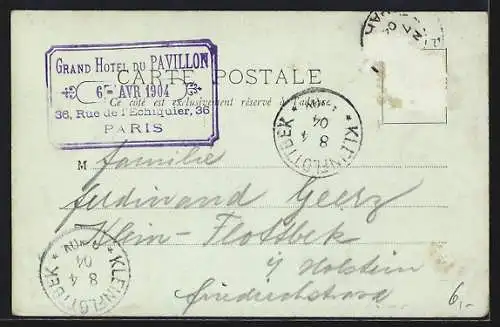 GRAND HOTEL DU PAVILLON
6 AVR 1904
36, Rue de l'Echiquier, 36
PARIS
CARTE POSTALE
Ce côté est exclusivement réservé à l'adresse
KLEINFLOTTBEK
8 4
04
M Familie
Ferdinand Geerz
Klein-Flottbek
i/ Holstein
Friedrichstrasse
KLEINFLOTTBEK
8 4
04
6,-